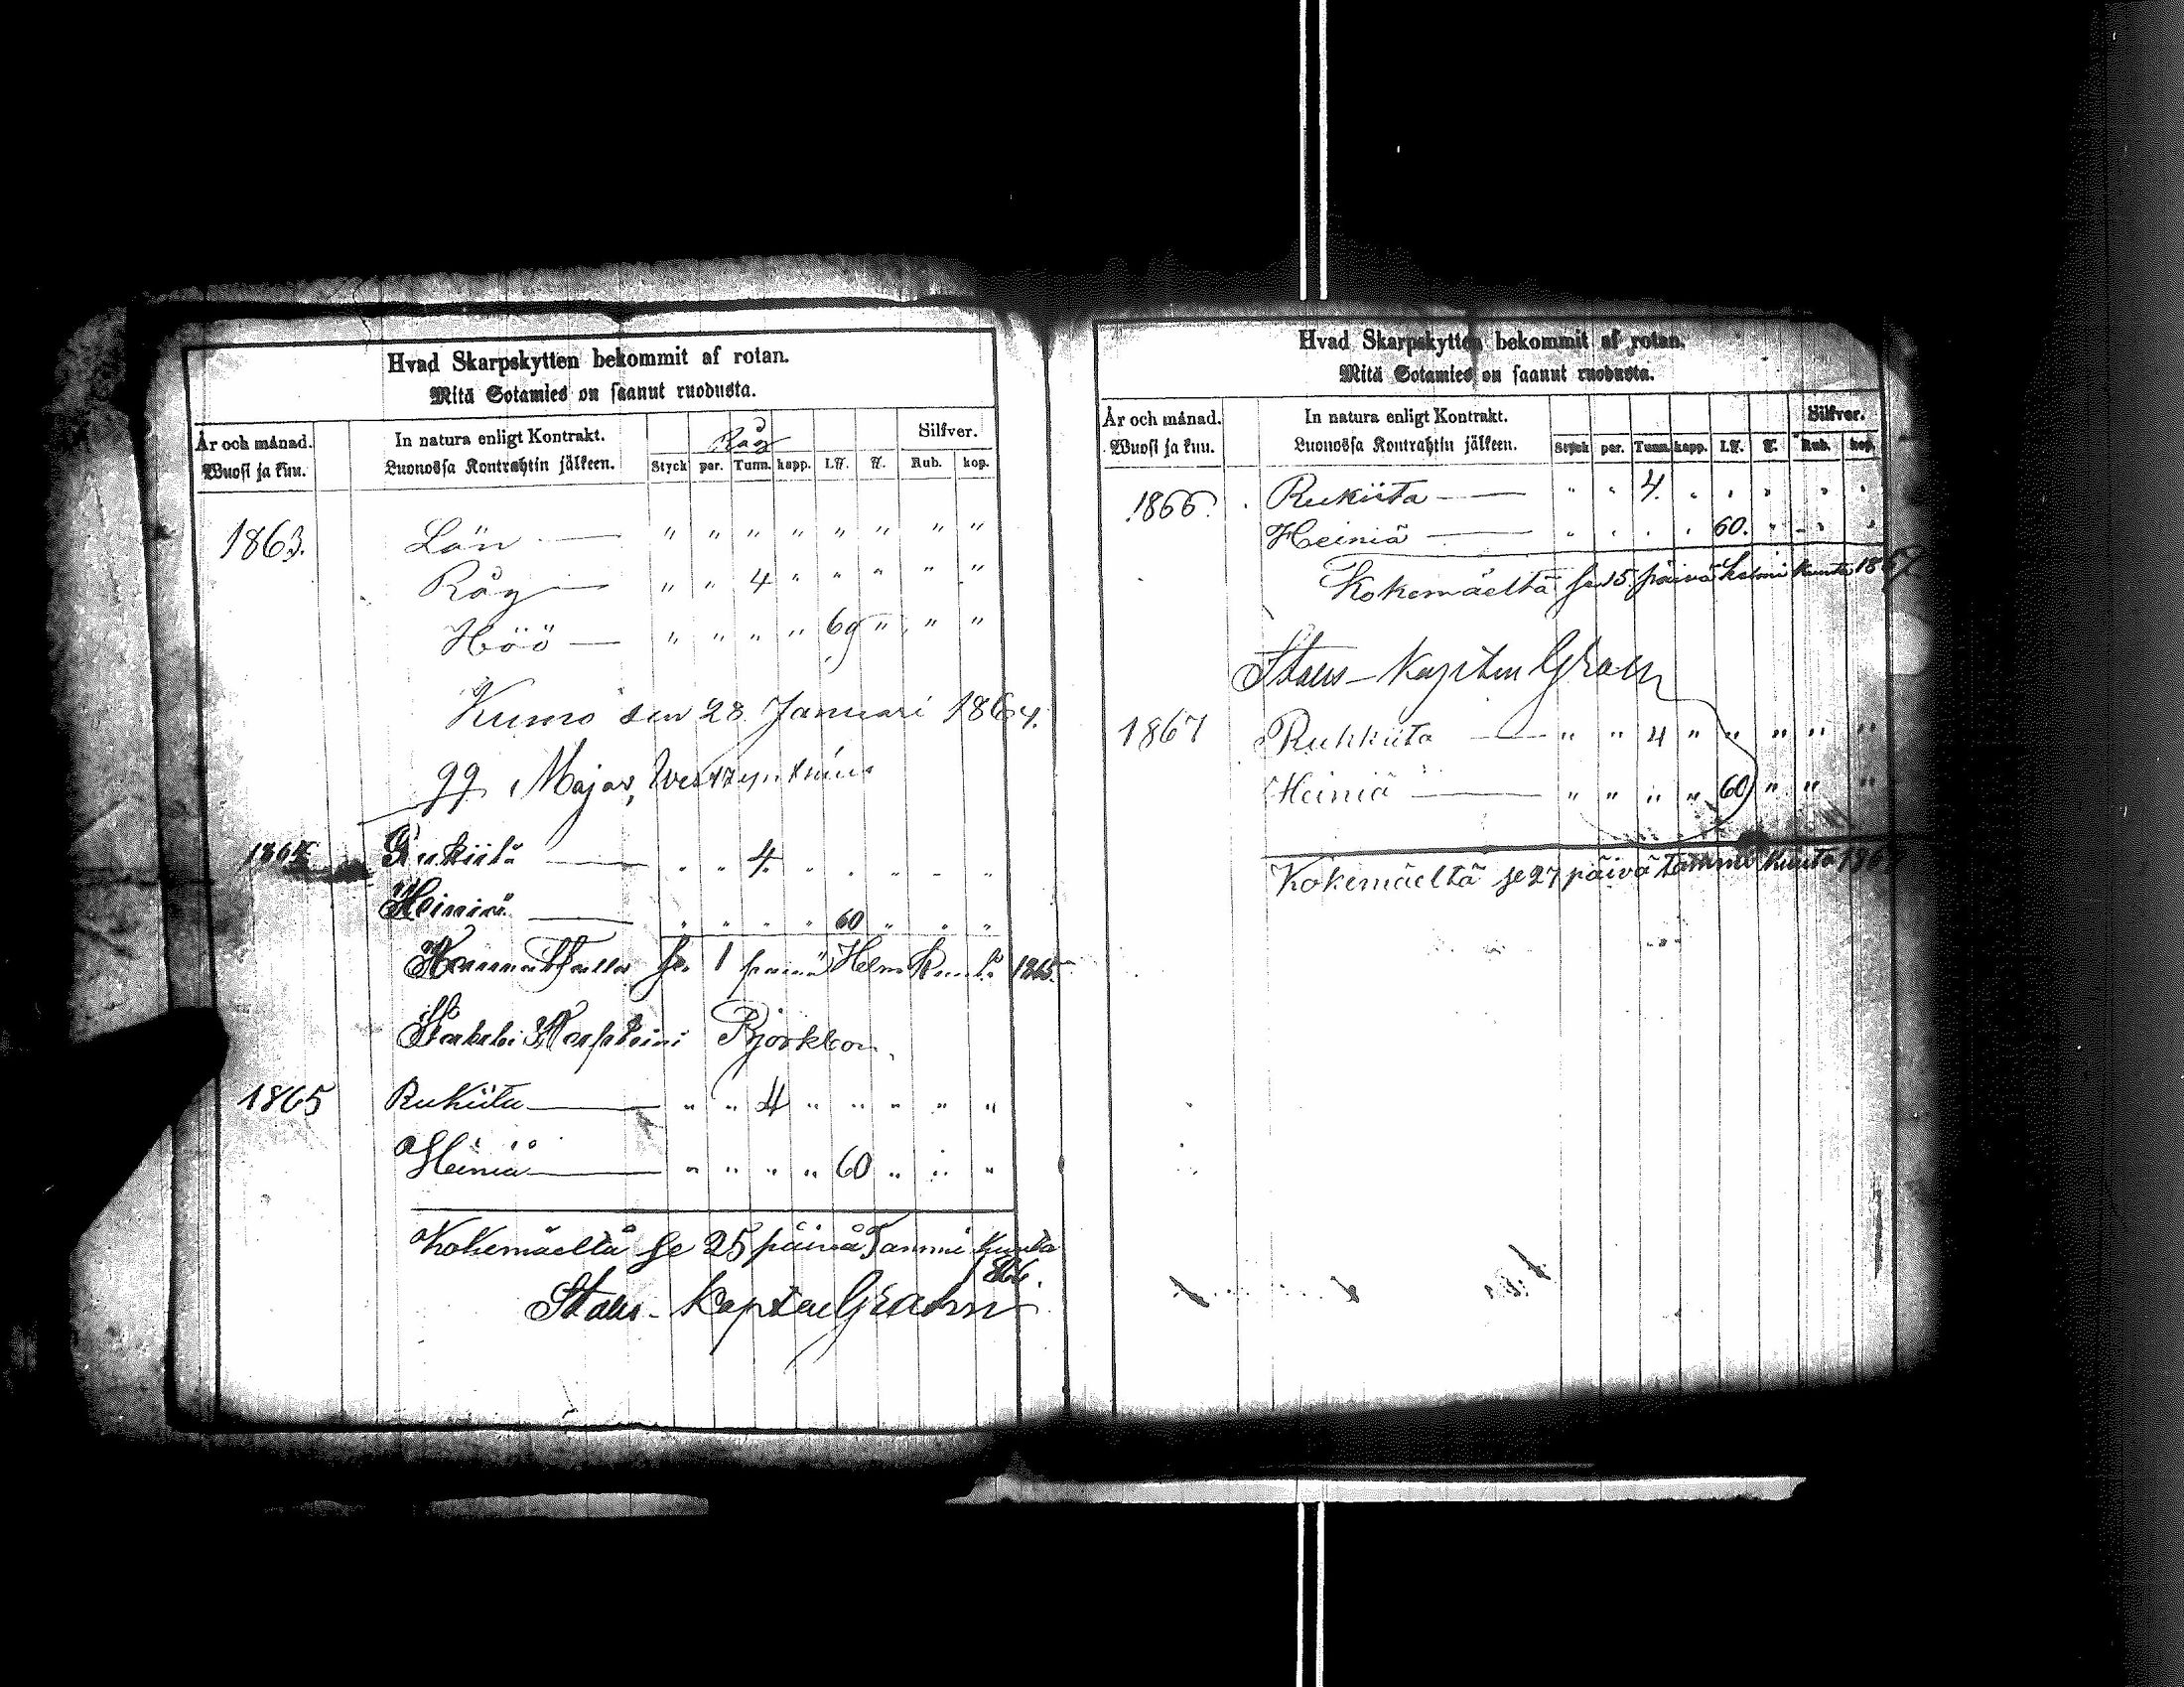 Hvad Skarpskytten bekommit af rotan.
Mitä Sotamies on saanut ruodusta.
År och månad. In natura enligt Kontrakt. Råg Silfver.
Wuosi ja kuu. Luonossa Kontrahtin jälkeen. Styck par. Tunn. kapp. L℔. ℔. Rub. kop.
1863. Lön — " " " " " " " "
Råg — " " 4 " " " " "
Höö — " " " " 60 " " "
Kumo den 28 Januari 1864.
Major,
1864 Rukiita — " " 4 " " " " "
Heiniä — " " " " 60 " " "
se 1 päivä Helmi Kuuta 1865
Björkbom
1865 Rukiita — " " 4 " " " " "
Heiniä — " " " " 60 " " "
Kokemäeltä se 25 päivä Tammi kuuta
1866.
Stabs-Kapten Grahn
Hvad Skarpskytten bekommit af rotan.
Mitä Sotamies on saanut ruodusta.
År och månad. In natura enligt Kontrakt. Silfver.
Wuosi ja kuu. Luonossa Kontrahtin jälkeen. Styck par. Tunn. kapp. L℔. ℔. Rub. kop.
1866. Rukiita — " " 4 " " " " "
Heiniä — " " " " 60. " " "
Kokemäeltä se 15 päivä helmi kuuta 1867
Stabs-Kapten Grahn
1867 Ruhkiita — " " 4 " " " " "
Heiniä — " " " " 60 " " "
Kokemäeltä se 27 päivä tammi kuuta